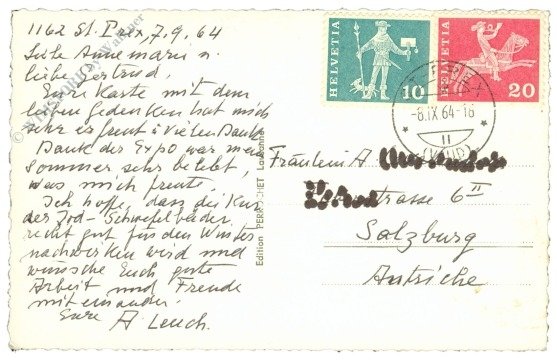 1162 St. Prex, 7.9.64
Liebe Annemarie u.
liebe Gertrud.
Eure Karte mit dem
lieben Gedenken hat mich
sehr erfreut & Vielen Dank.
Dank der Expo war mein
Sommer sehr belebt,
was mich freute.
Ich hoffe, dass die Kur
der Jod-Schwefelbäder
recht gut für den Winter
nachwirken wird und
wünsche Euch gute
Arbeit und Freude
miteinander.
Eure A Leuch.
Edition PERROCHET Lausanne
HELVETIA
10
HELVETIA
20
-8.IX 64-18
(VAUD)
Fräulein A
strasse 6 II
Salzburg
Autriche